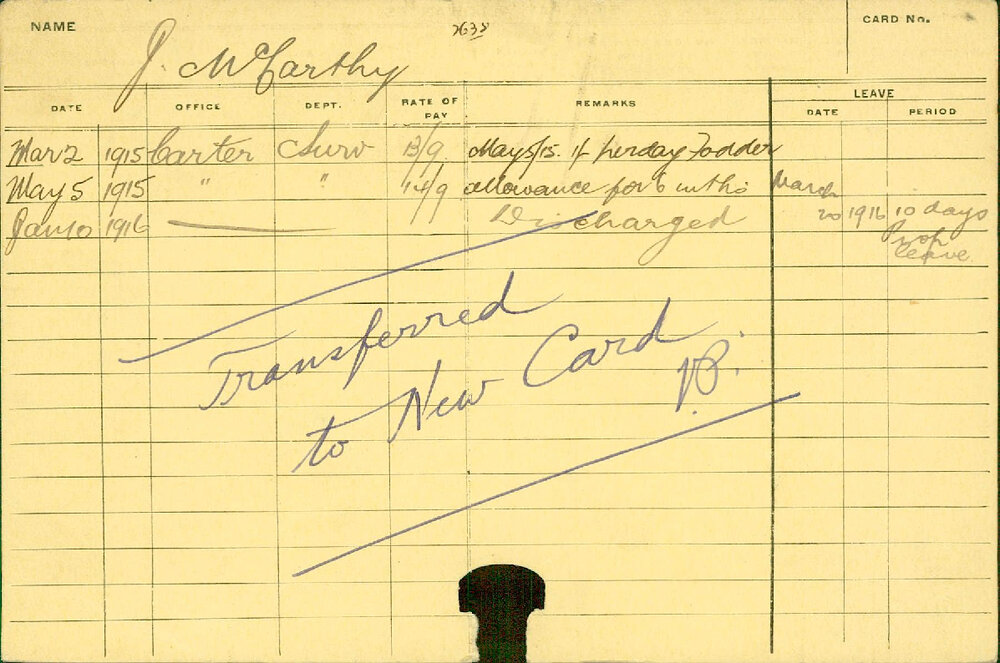 NAME
CARD No.
J. McCarthy
DATE OFFICE DEPT. RATE OF PAY REMARKS LEAVE
DATE PERIOD
Mar 2 1915 Carter Surv 13/9 May 5/15. 1/- per day Fodder
May 5 1915 " " 14/9 allowance for 6 mths March
Jan 10 1916 — Discharged 20 1916 10 days
leave
Transferred
to New Card